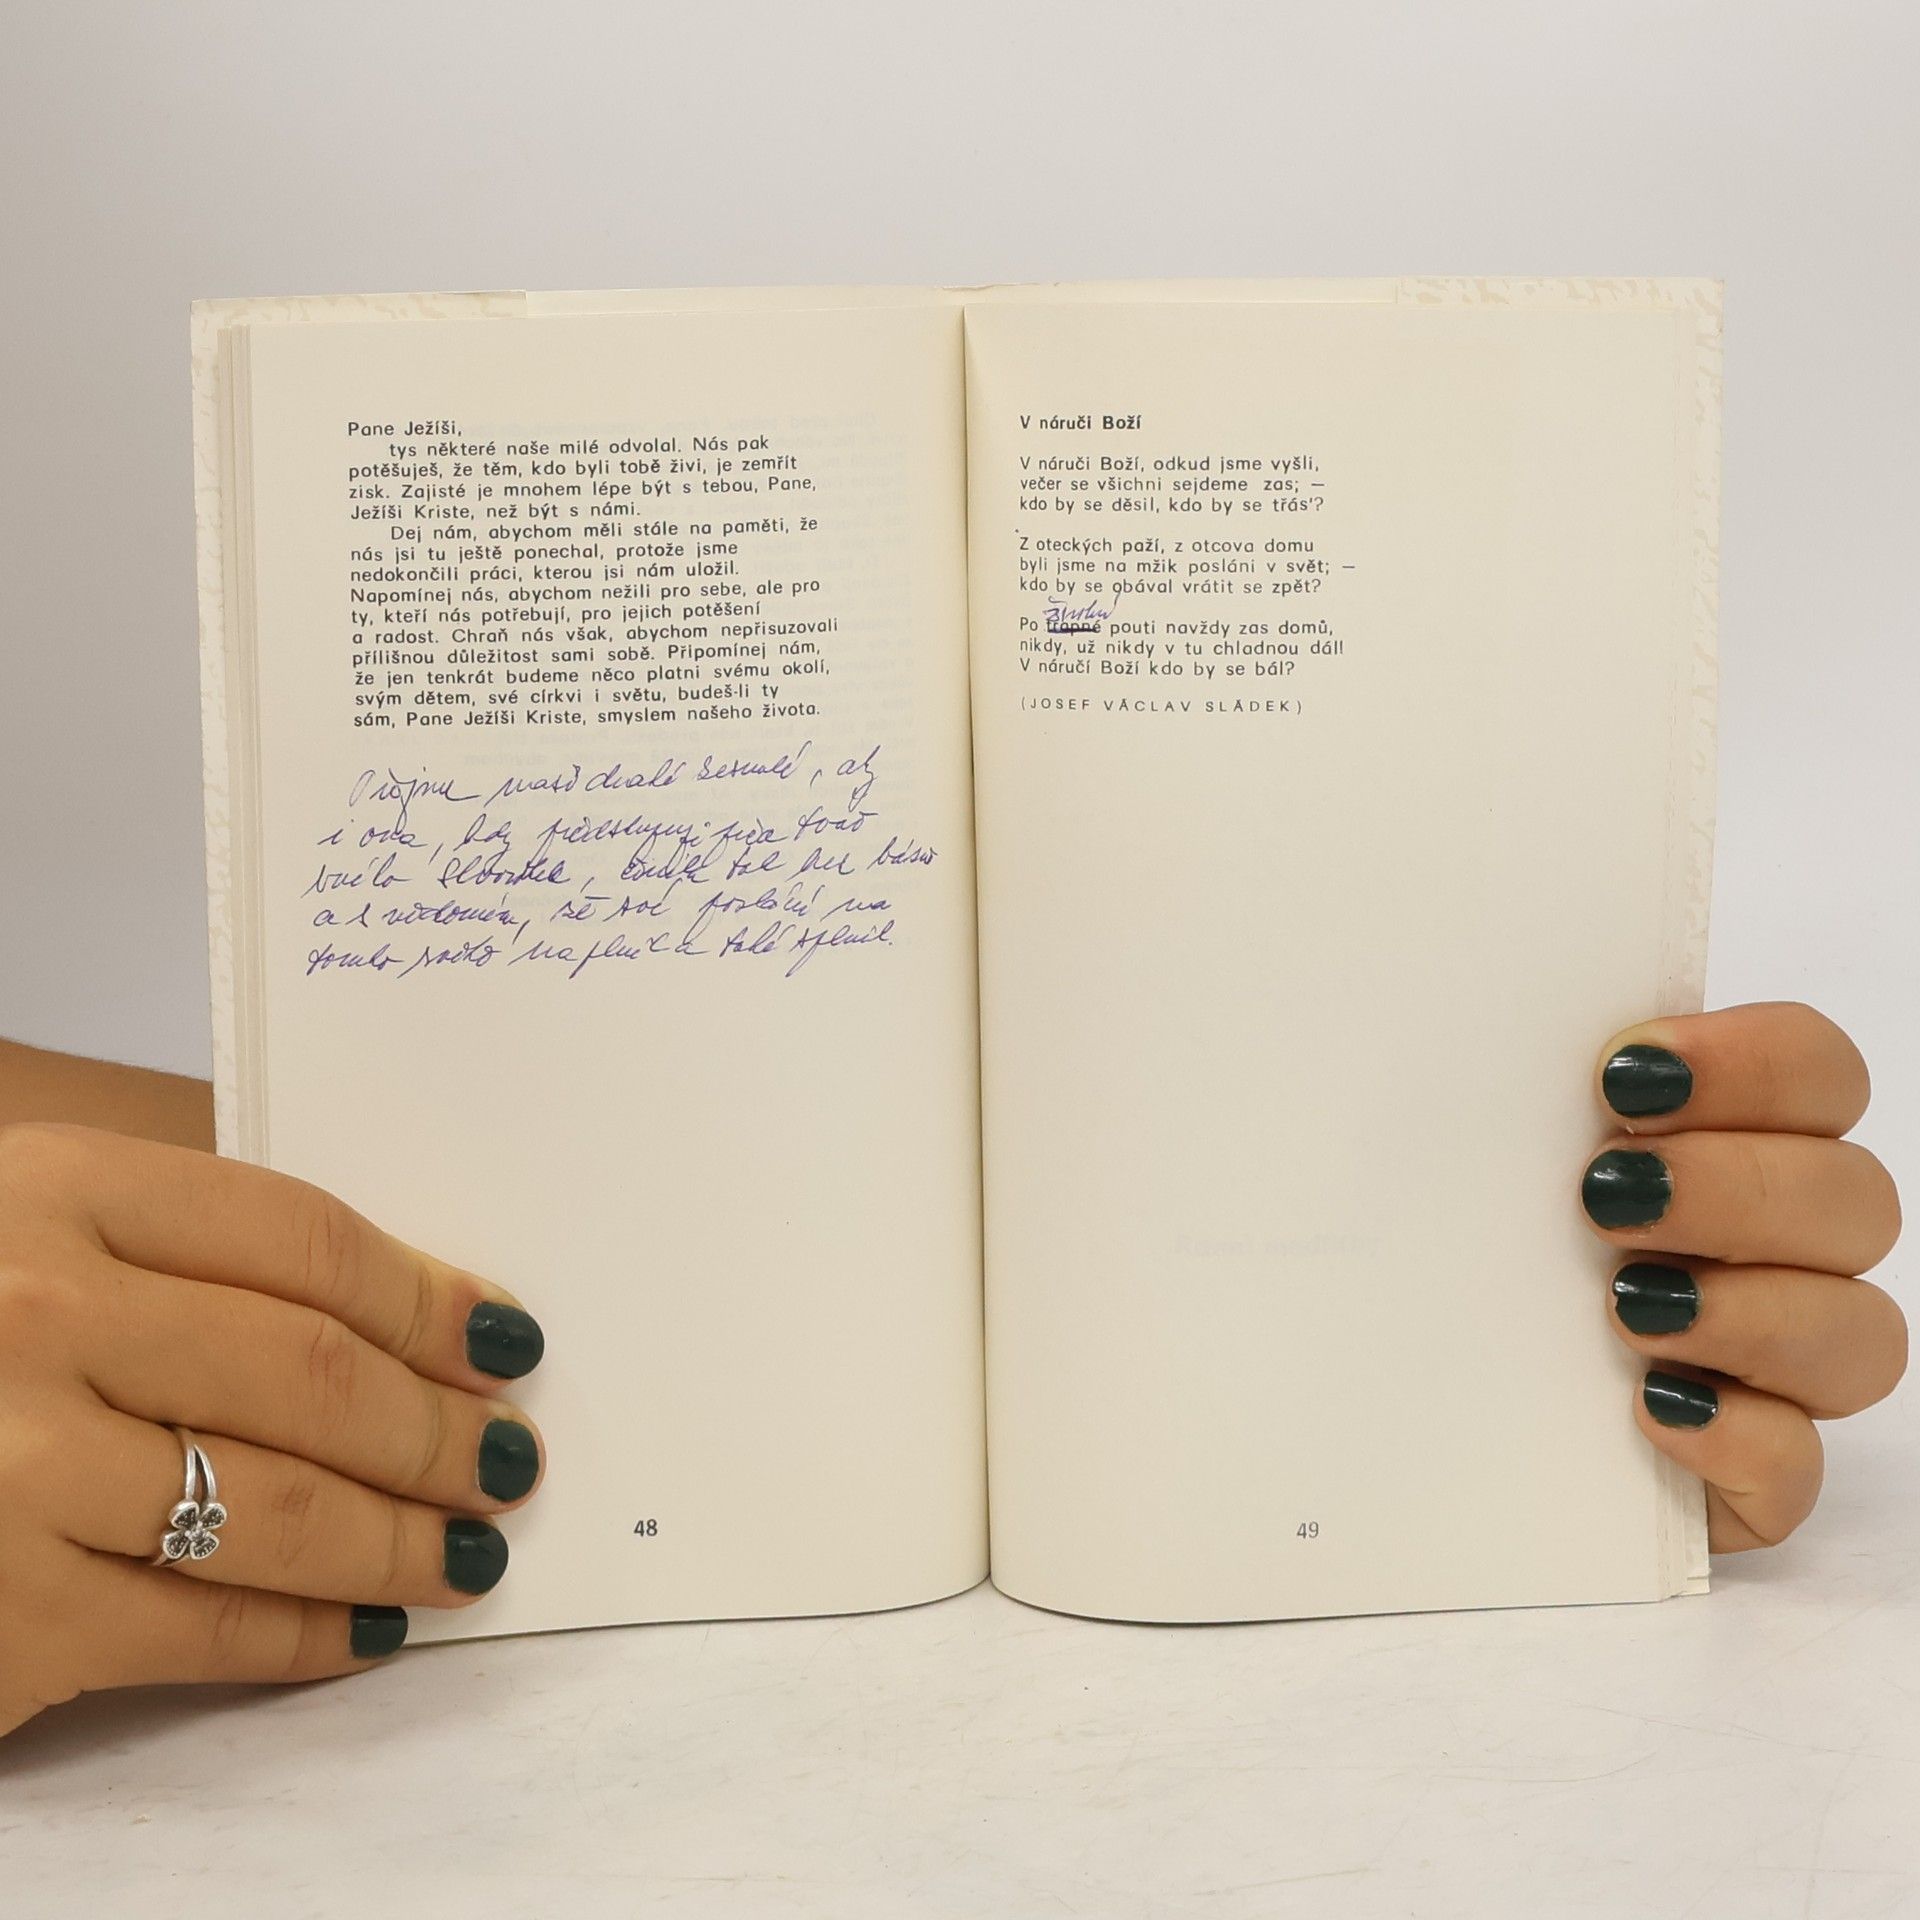 Pane Ježíši,
tys některé naše milé odvolal. Nás pak
potěšuješ, že těm, kdo byli tobě živi, je zemřít
zisk. Zajisté je mnohem lépe být s tebou, Pane,
Ježíši Kriste, než být s námi.
Dej nám, abychom měli stále na paměti, že
nás jsi tu ještě ponechal, protože jsme
nedokončili práci, kterou jsi nám uložil.
Napomínej nás, abychom nežili pro sebe, ale pro
ty, kteří nás potřebují, pro jejich potěšení
a radost. Chraň nás však, abychom nepřisuzovali
přílišnou důležitost sami sobě. Připomínej nám,
že jen tenkrát budeme něco platni svému okolí,
svým dětem, své církvi i světu, budeš-li ty
sám, Pane Ježíši Kriste, smyslem našeho života.
drahé zesnulé, aby
i ona, kdy
tak bez bázně
a s vědomím, že své poslání na
tomto světě naplnil a také splnil.
48
V náruči Boží
V náruči Boží, odkud jsme vyšli,
večer se všichni sejdeme zas; —
kdo by se děsil, kdo by se třás'?
Z oteckých paží, z otcova domu
byli jsme na mžik posláni v svět; —
kdo by se obával vrátit se zpět?
Po trapné pouti navždy zas domů,
nikdy, už nikdy v tu chladnou dál!
V náručí Boží kdo by se bál?
(JOSEF VÁCLAV SLÁDEK)
49